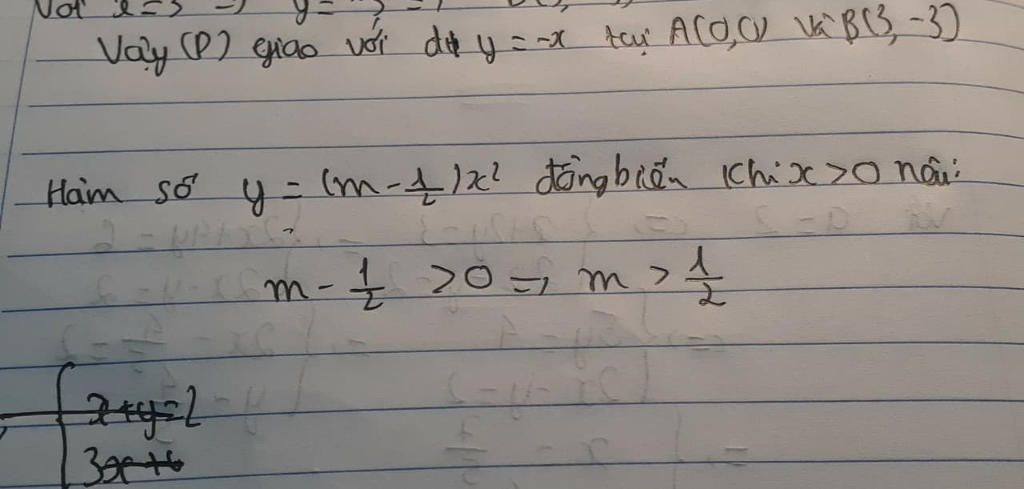 Với x=3 => y=
Vậy (P) giao với đt y = -x tại A(0,0) và B(3,-3)
Hàm số y = (m - 1/2)x² đồng biến khi x > 0 nếu:
m - 1/2 > 0 => m > 1/2
x + y = 2
3x + 6